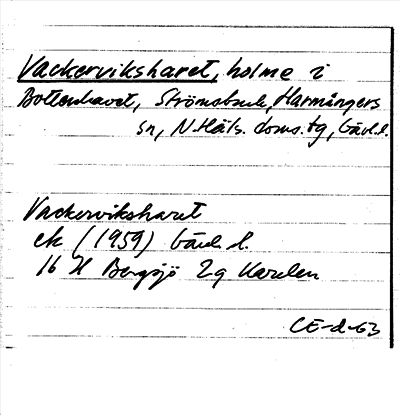 Vackerviksharet, holme i
Bottenhavet, Strömsbruk, Harmångers
sn, N.Häls. doms.tg, Gävl.l.
Vackerviksharet
ek (1959) Gävl. l.
16 H Bergsjö 2g Kartan
CE-d-63